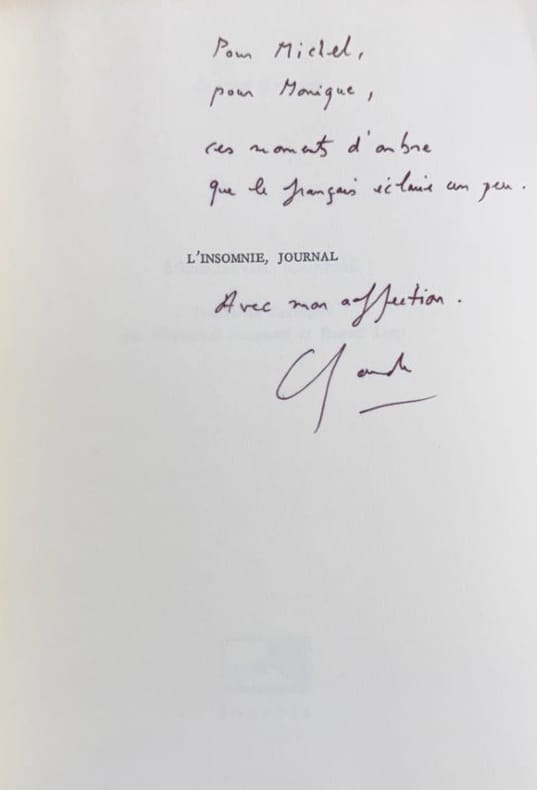 Pour Michel,
pour Monique,
ces moments d'ombre
que le français éclaire un peu.
L'INSOMNIE, JOURNAL
Avec mon affection.
Claude